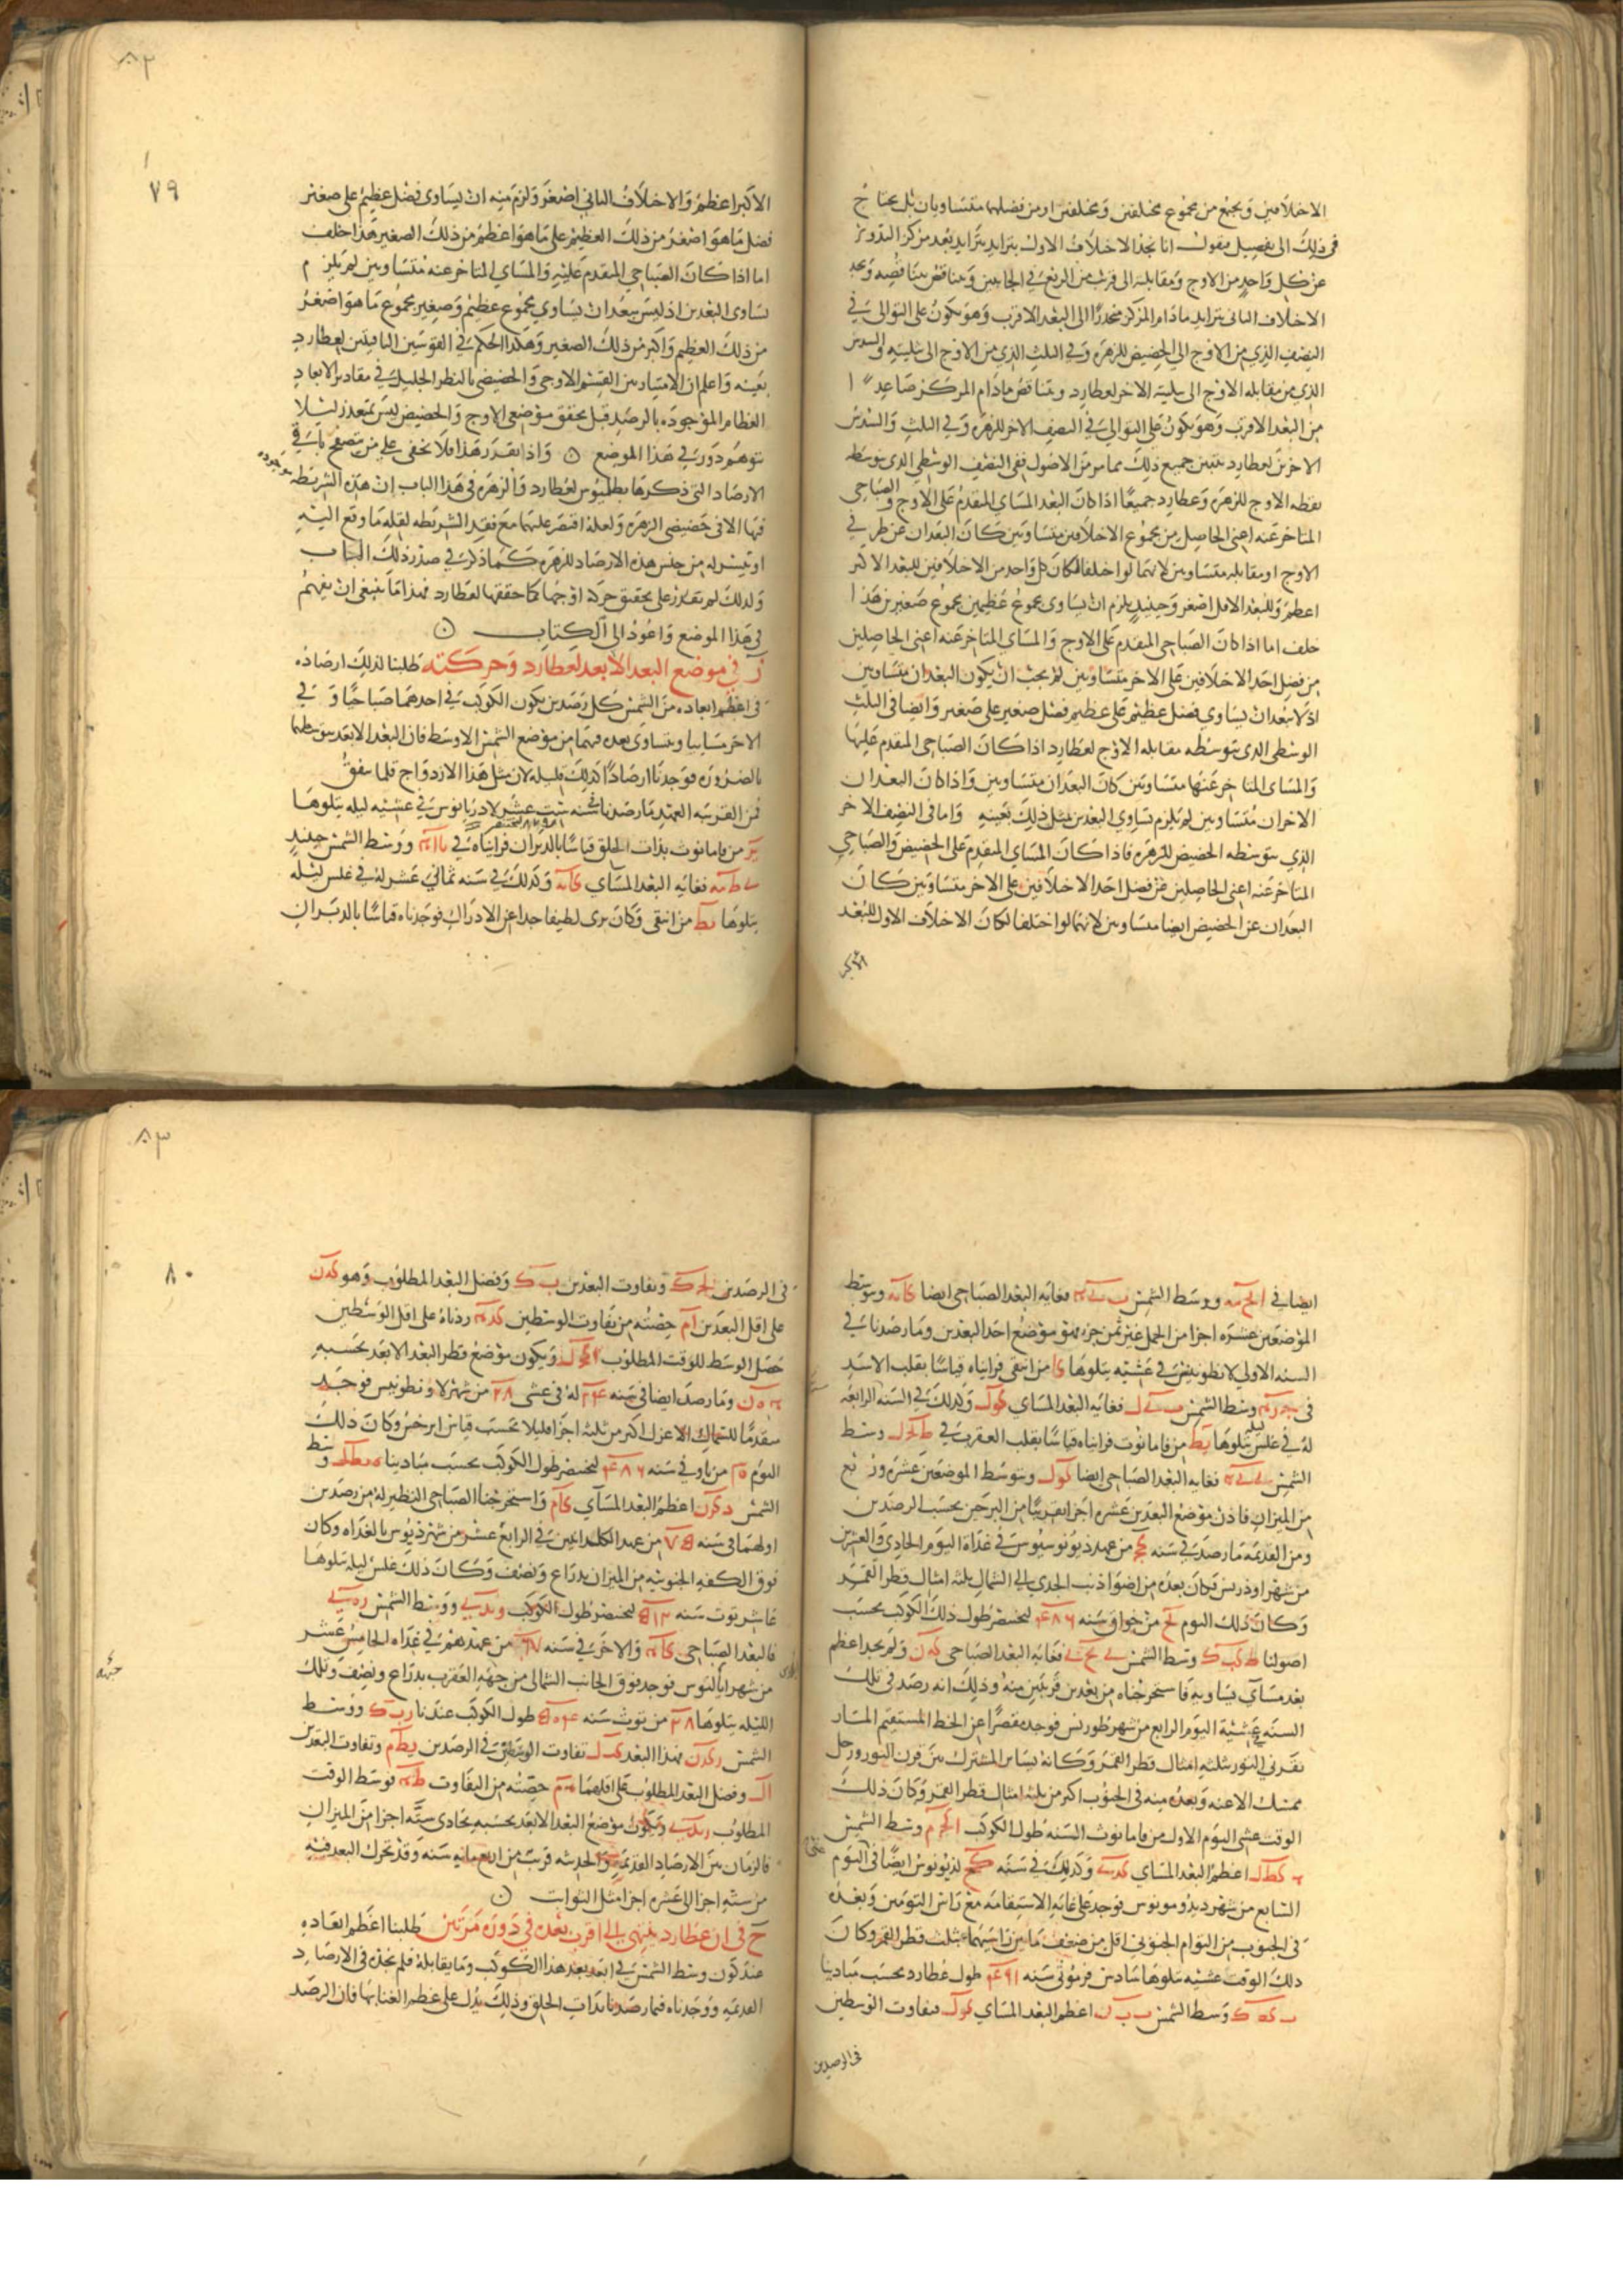 الاختلافين ويجتمع من مجموع مختلفين ومختلفين او من فضلهما متساويان بل يحتاج
في ذلك الى تفصيل فنقول انا نجد الاختلاف الاول يتزايد بتزايد بعد مركز التدوير
عن كل واحد من الاوج ومقابلته الى قرب من الربع في الجانبين ويتناقص بتناقصه ونجد
الاختلاف الثاني يتزايد مادام المركز منحدرا الى البعد الاقرب وهو يكون على التوالي في
النصف الذي من الاوج الى الحضيض للزهرة وفي الثلث الذي من الاوج الى تثليثه والسدس
الذي من مقابلة الاوج الى تثليثه الاخر لعطارد ويتناقص مادام المركز صاعدا
من البعد الاقرب وهو يكون على التوالي في النصف الاخر للزهرة وفي الثلث والسدس
الاخرين لعطارد يتبين جميع ذلك مما مر من الاصول ففي النصف الوسطي الذي يتوسطه
نقطة الاوج للزهرة وعطارد جميعا اذا كان البعد المسائي المتقدم على الاوج والصباحي
المتاخر عنه اعني الحاصل من مجموع الاختلافين متساويين كان البعدان عن طرفي
الاوج او مقابله متساويين لانهما لو اختلفا لكان كل واحد من الاختلافين للبعد الاكثر
اعظم وللبعد الاقل اصغر وحينئذ يلزم ان يساوي مجموع عظيمين مجموع صغيرين هذا
خلف اما اذا كان الصباحي المتقدم على الاوج والمسائي المتاخر عنه اعني الحاصلين
من فضل احد الاختلافين على الاخر متساويين لم يجب ان يكون البعدان متساويين
اذ لا يبعد ان يساوي فضل عظيم على عظيم فضل صغير على صغير وايضا في الثلث
الوسطي الذي يتوسطه مقابلة الاوج لعطارد اذا كان الصباحي المتقدم عليها
والمسائي المتاخر عنها متساويين كان البعدان متساويين واذا كان البعدان
الاخران متساويين لم يلزم تساوي البعدين لمثل ذلك بعينه واما في النصف الاخر
الذي يتوسطه الحضيض للزهرة فاذا كان المسائي المتقدم على الحضيض والصباحي
المتاخر عنه اعني الحاصلين من فضل احد الاختلافين على الاخر متساويين كان
البعدان عن الحضيض ايضا متساويين لانهما لو اختلفا لكان الاختلاف الاول للبعد
الاكبر
٨٢
٧٩
الاكبر اعظم والاختلاف الثاني اصغر ولزم منه ان يساوي فضل عظيم على صغير
فضل ما هو اصغر من ذلك العظيم على ما هو اعظم من ذلك الصغير هذا خلف
اما اذا كان الصباحي المتقدم عليه والمسائي المتاخر عنه متساويين لم يلزم
تساوي البعدين اذ ليس ببعد ان يساوي مجموع عظيم وصغير مجموع ما هو اصغر
من ذلك العظيم واكبر من ذلك الصغير وهكذا الحكم في القوسين الباقيتين لعطارد
بعينه واعلم ان الامتياز بين القسم الاوجي والحضيضي بالنظر الجليل في مقادير الابعاد
العظام الموجودة بالرصد قبل تحقق موضعي الاوج والحضيض ليس بمتعذر لئلا
يتوهم دور في هذا الموضع ٥ واذا تقرر هذا فلا يخفى على من يتصفح باقي
الارصاد التي ذكرها بطلميوس لعطارد والزهرة في هذا الباب ان هذه الشريطة موجودة
فيها الا في حضيضي الزهرة ولعله اقتصر عليهما مع فقد الشريطة لقلة ما وقع اليه
او تيسر له من جنس هذه الارصاد للزهرة كما ذكر في صدر ذلك الباب
ولذلك لم يقدر على تحقيق حركة اوجها كما حققها لعطارد فهذا ما ينبغي ان يفهم
في هذا الموضع واعود الى الكتاب ٥
ز في موضع البعد الابعد لعطارد وحركته طلبنا لذلك ارصاده
في اعظم ابعاده من الشمس كل رصدين يكون الكوكب في احدهما صباحيا وفي
الاخر مسائيا ويتساوى بعده فيهما من موضع الشمس الاوسط فان البعد الابعد يتوسطهما
بالضرورة فوجدنا ارصادا كذلك قليلة لان مثل هذا الازدواج قلما يتفق
فمن القريبة العهد ما رصدناه سنة ست عشر لادريانوس في عشية ليلة يتلوها
يو من فامانوث بذات الحلق قياسا بالدبران فرايناه في ووسط الشمس حينئذ
فغاية البعد المسائي وكذلك في سنة ثماني عشر له في غلس ليلة
يتلوها يط من ابيفي وكان يرى لطيفا جدا عن الادراك فوجدناه قياسا بالدبران
ايضا في ووسط الشمس فغاية البعد الصباحي ايضا وتوسط
الموضعين عشرة اجزا من الحمل غير ثمن جزء فهو موضع احد البعدين ومما رصدنا في
السنة الاولى لانطونينس في عشية يتلوها كا من ابيفي فرايناه قياسا بقلب الاسد
في ووسط الشمس فغاية البعد المسائي وكذلك في السنة الرابعة
له في غلس ليلة يتلوها يط من فامانوث فرايناه قياسا بقلب العقرب في ووسط
الشمس فغاية البعد الصباحي ايضا ويتوسط الموضعين عشرة وربع
من الميزان فاذن موضع البعدين عشرة اجزا تقريبا من البرجين بحسب الرصدين
ومن القديمة ما رصد في سنة كج من عهد ذيونوسيوس في غداة اليوم الحادي والعشرين
من شهر اوذرين فكان بعده من اضوا ذنب الجدي الى الشمال ثلثة امثال قطر القمر
وكان ذلك اليوم من خواق سنة ٤٨٦ لبختنصر طول ذلك الكوكب بحسب
اصولنا ووسط الشمس فغاية البعد الصباحي ولم نجد اعظم
بعد مسائي يساويه فاستخرجناه من بعدين قريبين منه وذلك انه رصد في تلك
السنة عشية اليوم الرابع من شهر طورنس فوجده مقصرا عن الخط المستقيم المار
بقرني الثور بثلثة امثال قطر القمر وكانه يساير المشترك بين قرن الثور ورجل
ممسك الاعنة وبعده منه في الجنوب اكثر من ثلثة امثال قطر القمر وكان ذلك
الوقت عشي اليوم الاول من فامانوث السنة طول الكوكب ووسط الشمس
اعظم البعد المسائي وكذلك في سنة كح لذيونوس ايضا في اليوم
السابع من شهر ديدومونوس فوجد على غاية الاستقامة مع راس التومين وبعده
في الجنوب من التوام الجنوبي اقل من ضعف ما بين راسيهما بثلث قطر القمر وكان
ذلك الوقت عشية يتلوها سادس فرموثي سنة ٤٩١ طول عطارد بحسب مبادينا
ووسط الشمس اعظم البعد المسائي فتفاوت الوسطين
في الرصدين
٨٣
٨٠
في الرصدين وتفاوت البعدين وفضل البعد المطلوب وهو
على اقل البعدين حصته من تفاوت الوسطين زدناه على اقل الوسطين
حصل الوسط للوقت المطلوب ويكون موضع قطر البعد الابعد بحسبه
ومما رصده ايضا في سنة ٢٤ له في عشي ٢٨ من شهر لاونطونيس فوجد
متقدما للسماك الاعزل اكثر من ثلثة اجزا قليلا بحسب قياس ابرخس وكان ذلك
اليوم من باوني سنة ٤٨٦ لبختنصر طول الكوكب بحسب مبادينا ووسط
الشمس اعظم البعد المسائي واستخرجنا الصباحي النظير له من رصدين
اولهما في سنة ٧٥ من عهد الكلدانيين في الرابع عشر من شهر ذيوس بالغداة وكان
فوق الكفة الجنوبية من الميزان بذراع ونصف وكان ذلك غلس ليلة يتلوها
عاشر توت سنة ٥١٢ لبختنصر طول الكوكب ووسط الشمس
فالبعد الصباحي والاخر في سنة ٦٧ من عهدهم في غداة الخامس عشر
من شهر ابالنوس فوجد فوق الجانب الشمالي من جبهة العقرب بذراع ونصف وتلك
الليلة يتلوها ٢٨ من توث سنة ٥٠٤ طول الكوكب عندنا ووسط
الشمس فهذا البعد تفاوت الوسطين في الرصدين وتفاوت البعدين
وفضل البعد المطلوب على اقلهما حصته من التفاوت فوسط الوقت
المطلوب ويكون موضع البعد الابعد بحسبه يحاذي ستة اجزا من الميزان
فالزمان بين الارصاد القديمة والحديثة قريب من اربعمائة سنة وقد تحرك البعد فيه
من ستة اجزا الى عشرة اجزا مثل الثوابت ٥
ح في ان عطارد ينتهي الى اقرب بعده في دورة مرتين طلبنا اعظم ابعاده
عند كون وسط الشمس في ابعد بعد هذا الكوكب وما يقابله فلم نجده في الارصاد
القديمة ووجدناه فيما رصدنا بذات الحلق وذلك يدل على عظم الغنا بها فان الرصد